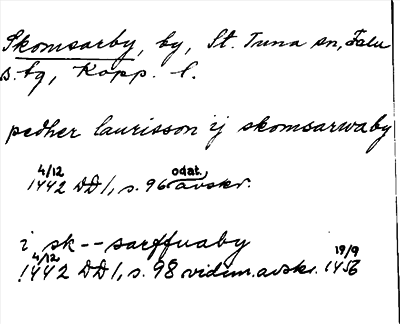 Skomsarby, by, St. Tuna sn, Falu
s. fg, Kopp. l.
pedher laurisson ij skomsarwaby
4/12 1442 DD 1, s. 96 odat. avskr.
i sk--sarffuaby
4/12 1442 DD 1, s. 98 vidim. avskr. 19/9 1456